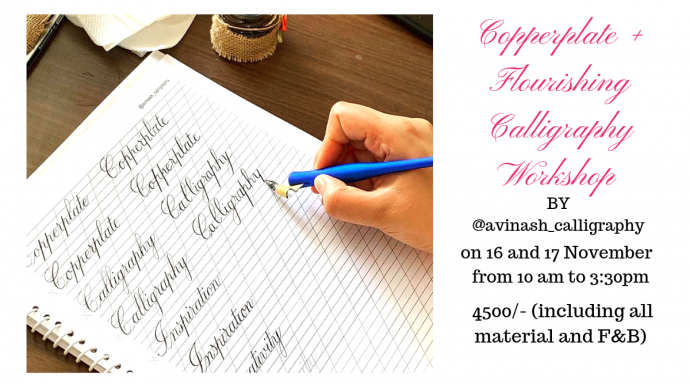 @avinash_calligraphy
Copperplate
Copperplate
Calligraphy
Calligraphy
copperplate
Copperplate
Calligraphy
Calligraphy
Inspiration
Inspiration
Copperplate +
Flourishing
Calligraphy
Workshop
BY
@avinash_calligraphy
on 16 and 17 November
from 10 am to 3:30pm
4500/- (including all
material and F&B)